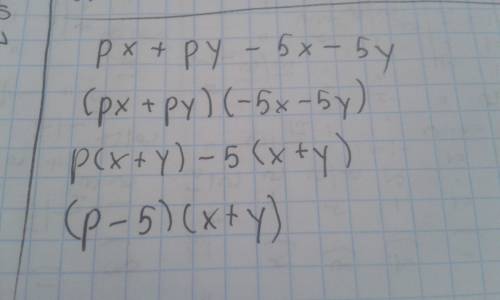 px + py - 5x - 5y
(px + py)(-5x - 5y)
p(x+y) - 5(x+y)
(p - 5)(x+y)